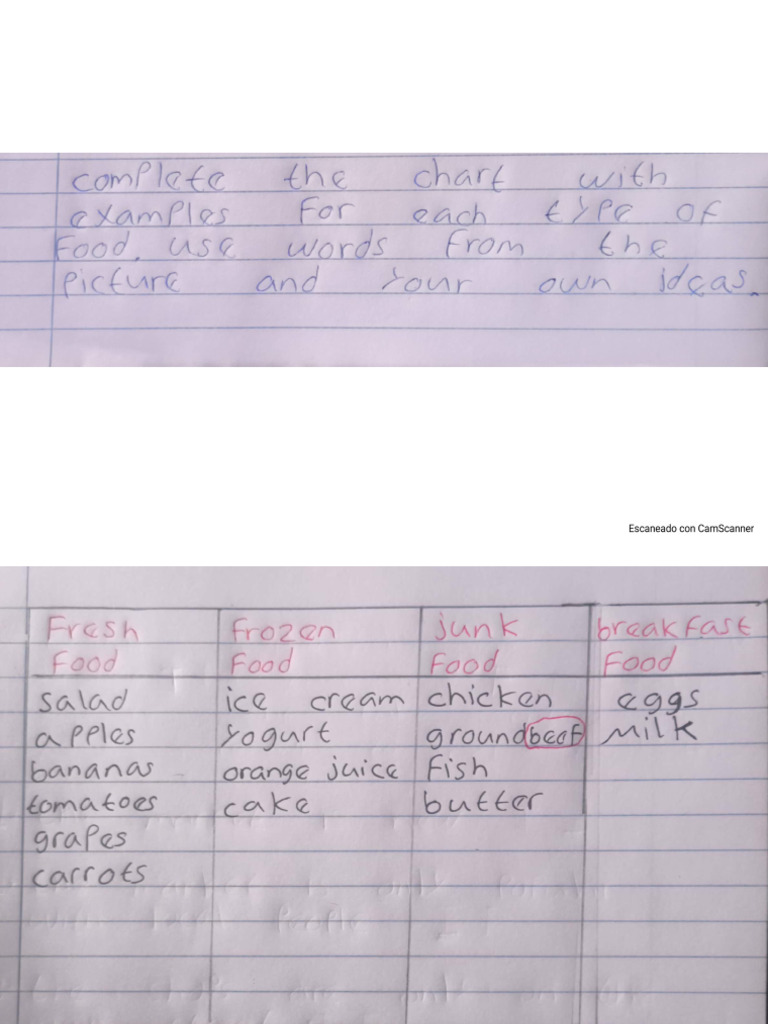 complete the chart with
examples for each type of
Food. use words from the
picture and your own ideas.
Escaneado con CamScanner
Fresh Food
frozen Food
junk Food
breakfast Food
salad
apples
bananas
tomatoes
grapes
carrots
ice cream
yogurt
orange juice
cake
chicken
ground beef
Fish
butter
eggs
Milk